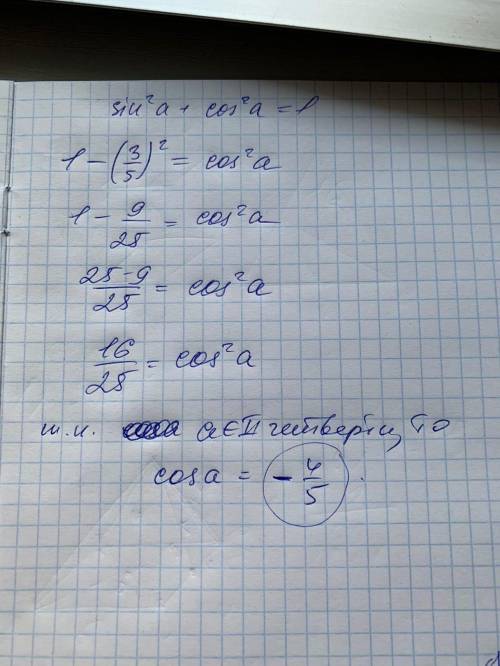 sin²a + cos²a = 1
1 − (3/5)² = cos²a
1 − 9/25 = cos²a
25−9/25 = cos²a
16/25 = cos²a
т.к. a∈II четверти, то
cos a = −4/5.